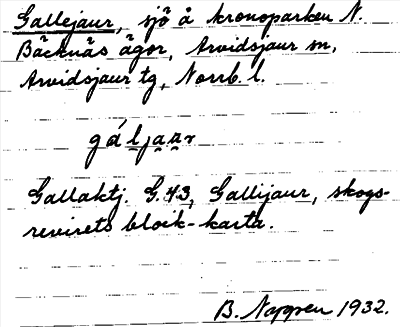 Gallejaur, sjö å kronoparken N.
Bäcknäs ägor, Arvidsjaur sn,
Arvidsjaur tg, Norrb. l.
gáljaar
Gallaktj. G. 43, Gallijaur, skogs-
revirets block-karta.
B. 1932.